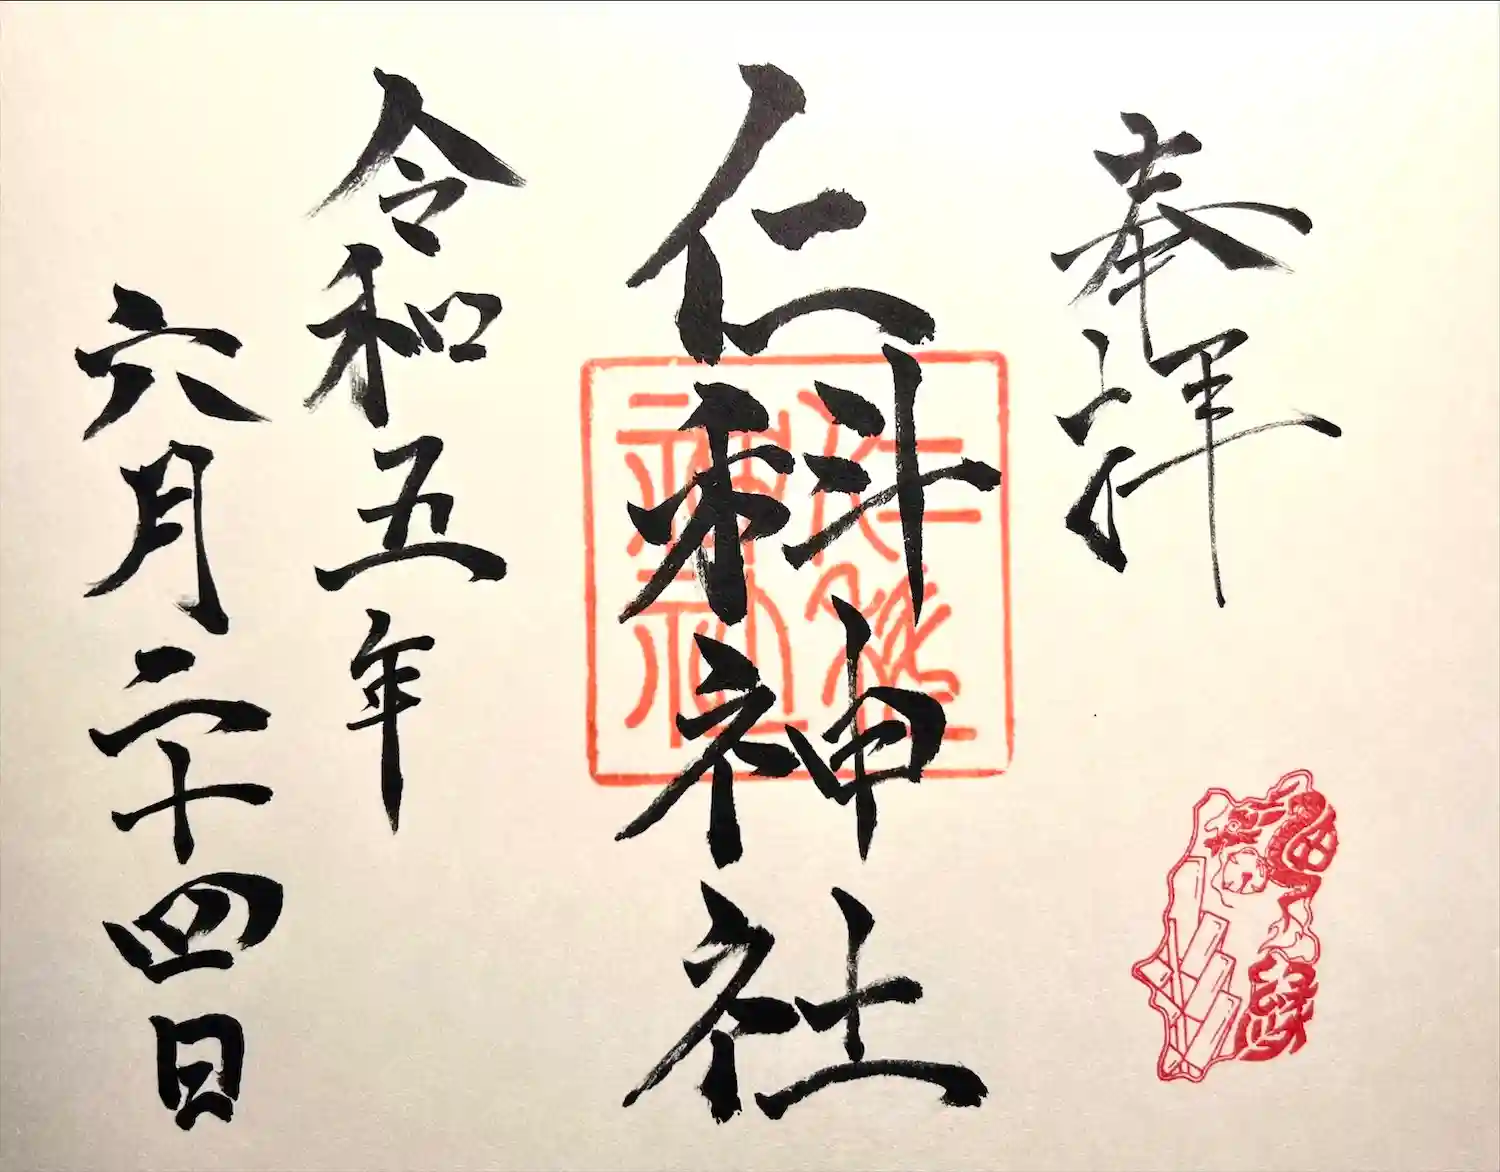 奉拝
仁科神社
仁科神社
令和五年
六月二十四日